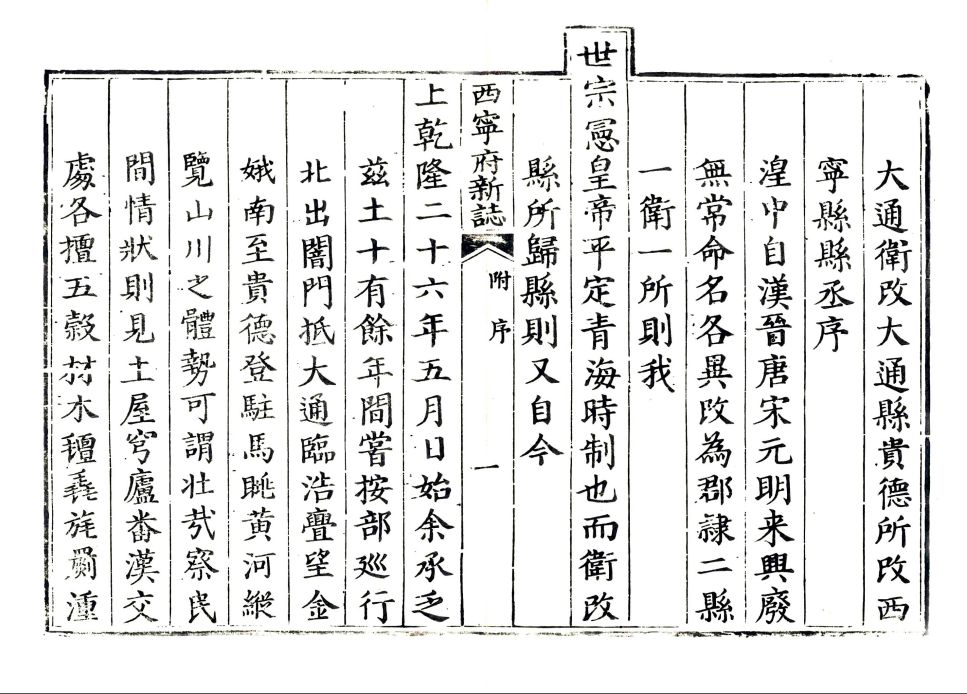 大通衛改大通縣貴德所改西
寧縣縣丞序
湟中自漢晉唐宋元明来興廢
無常命名各異改為郡隸二縣
一衛一所則我
世宗憲皇帝平定青海時制也而衛改
縣所歸縣則又自今
西寧府新誌 附序 一
上乾隆二十六年五月日始余承乏
兹土十有餘年間嘗按部巡行
北出闇門抵大通臨浩亹望金
娥南至貴德登駐馬眺黃河縱
覽山川之體勢可謂壯哉察民
間情狀則見土屋穹廬番漢交
處各擅五穀材木氊毳旄罽湩